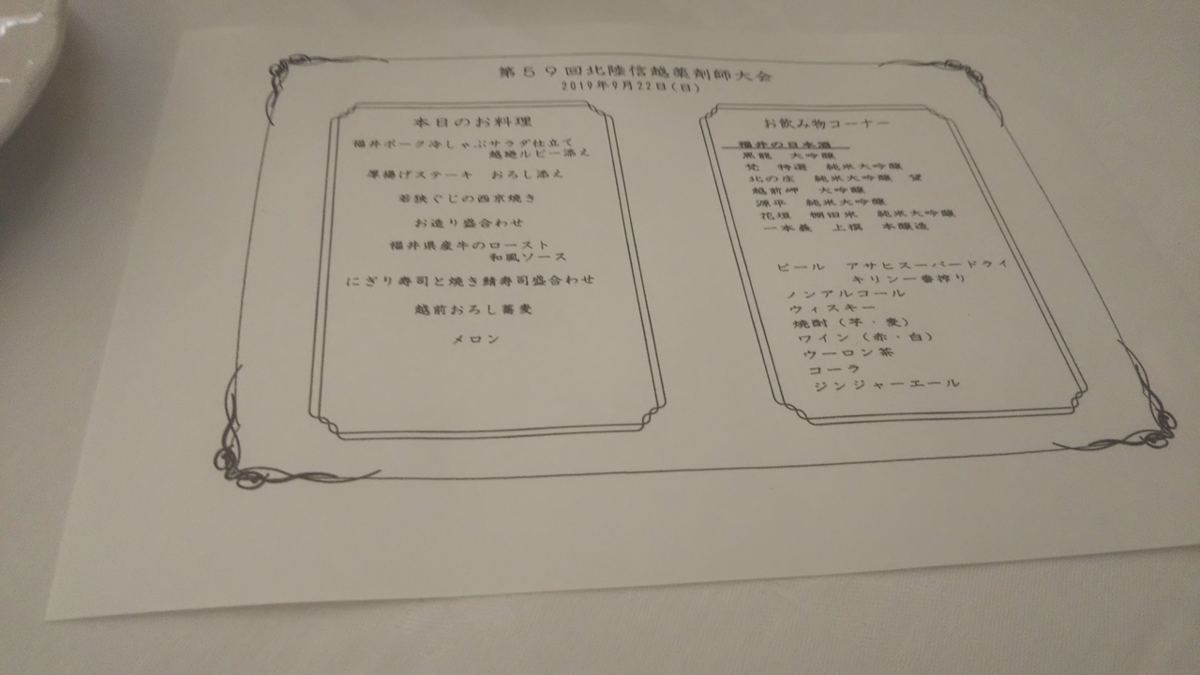 第59回北陸信越薬剤師大会
2019年9月22日(日)
本日のお料理
福井ポーク冷しゃぶサラダ仕立て
越廼ルビー添え
厚揚げステーキ おろし添え
若狭ぐじの西京焼き
お造り盛合わせ
福井県産牛のロースト
和風ソース
にぎり寿司と焼き鯖寿司盛合わせ
越前おろし蕎麦
メロン
お飲み物コーナー
福井の日本酒
黒龍 大吟醸
梵 特選 純米大吟醸
北の庄 純米大吟醸 望
越前岬 大吟醸
源平 純米大吟醸
花垣 棚田米 純米大吟醸
一本義 上撰 本醸造
ビール アサヒスーパードライ
キリン一番搾り
ノンアルコール
ウィスキー
焼酎(芋・麦)
ワイン(赤・白)
ウーロン茶
コーラ
ジンジャーエール